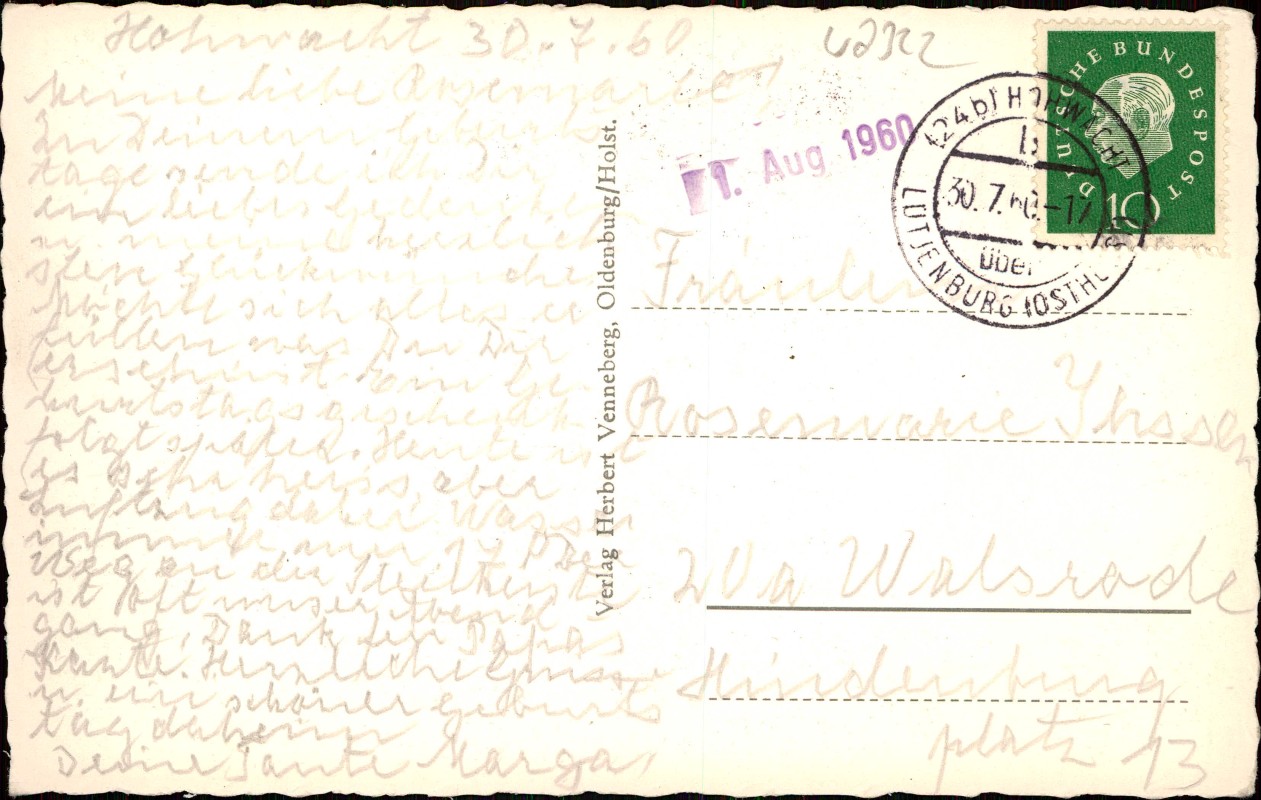 Hohwacht 30.7.60
Meine liebe Rosemarie!
Zu Deinem Geburts
tage sende ich Dir
ein liebes Gedenken
u. meine herzlich
sten Glückwünsche
Möchte sich alles er
füllen was Du Dir
ersehnst. Ein Ge
burtstagsgeschenk
folgt später. Heute ist
es sehr heiss, aber
Luftzug dabei Wasser
immer nur 17° Der
Weg an der Steilküste
ist oft unser Abend
gang. Dank für Papas
Karte. Herzliche Grüsse
u. ein schöner Geburts
tag daheim
Deine Tante Marga
Verlag Herbert Venneberg, Oldenburg/Holst.
1. Aug 1960
DEUTSCHE BUNDESPOST
10
(24b) HOHWACHT
30.7.60.-17
über
LÜTJENBURG (OSTHOLST)
Fräulein
Rosemarie Ihssen
20a Walsrode
Hindenburg
platz 13